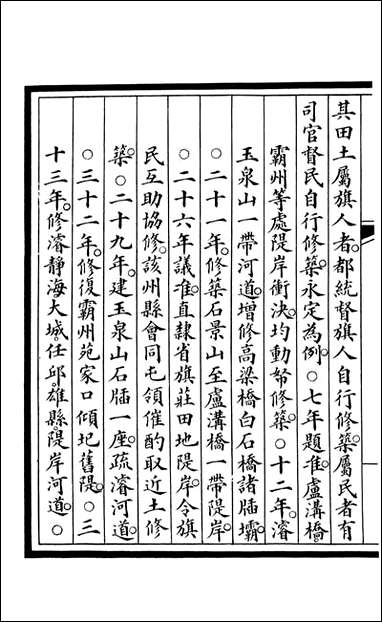 其田土屬旗人者。都統督旗人自行修築。屬民者有
司官督民自行修築。永定為例。○七年題准。盧溝橋
霸州等處隄岸衝決。均動帑修築。○十二年。濬
玉泉山一帶河道。增修高梁橋白石橋諸牐壩。
○二十一年。修築石景山至盧溝橋一帶隄岸。
○二十六年議准。直隸省旗莊田地隄岸。令旗
民互助協修。該州縣會同屯領催酌取近土修
築。○二十九年。建玉泉山石牐一座。疏濬河道。
○三十二年。修復霸州苑家口傾圮舊隄。○三
十三年。修濬靜海大城。任邱。雄縣。隄岸河道。○